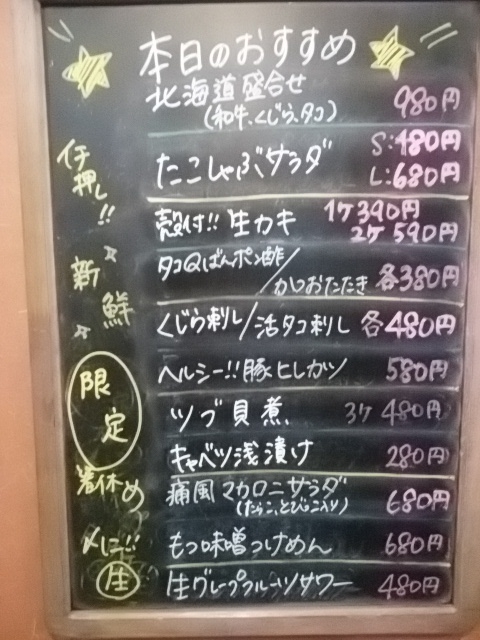 本日のおすすめ
北海道盛合せ 980円
(和牛、くじら、タコ)
たこしゃぶサラダ S:480円
L:680円
殻付!! 生カキ 1ケ390円
2ケ590円
タコQばんポン酢/かつおたたき 各380円
くじら刺し/活タコ刺し 各480円
ヘルシー!!豚ヒレカツ 580円
ツブ貝煮 3ケ 480円
キャベツ浅漬け 280円
痛風マカロニサラダ 680円
(たらこ、とびっこ入り)
もつ味噌つけめん 680円
生グレープフルーツサワー 480円
イチ押し!!
新鮮
限定
箸休め
〆に!!
生